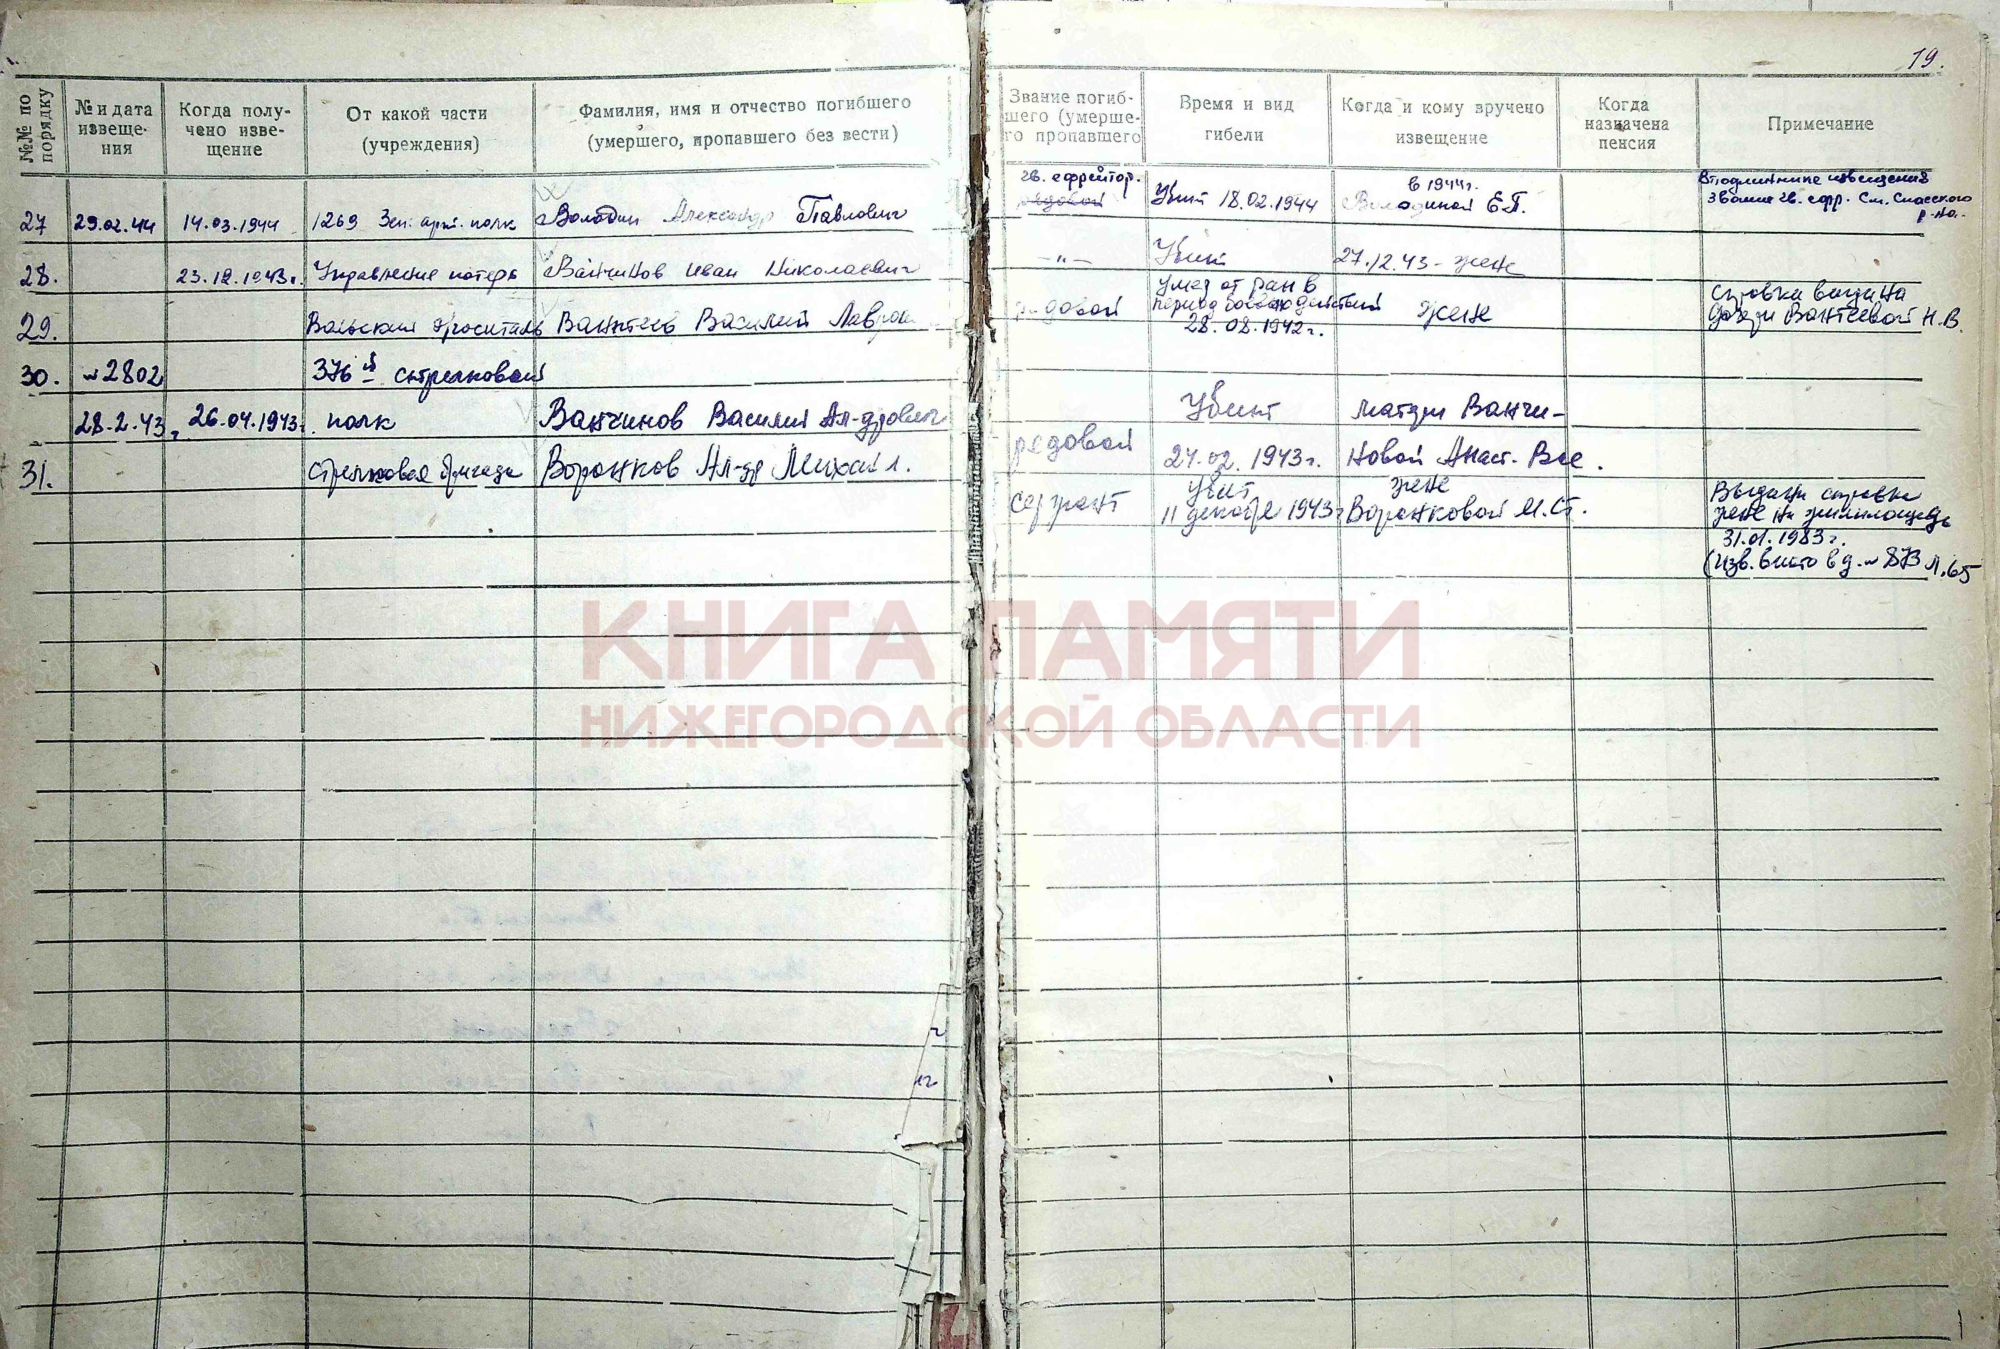 19.
№№ по порядку
№ и дата извеще-
ния
Когда полу-
чено изве-
щение
От какой части
(учреждения)
Фамилия, имя и отчество погибшего
(умершего, пропавшего без вести)
Звание погиб-
шего (умерше-
го пропавшего
Время и вид
гибели
Когда и кому вручено
извещение
Когда
назначена
пенсия
Примечание
27 29.02.44 14.03.1944 1269 Зен. арт. полк Володин Александр Павлович
гв. ефрейтор.
рядовой
Убит 18.02.1944
в 1944г.
Володиной Е.П.
В подлиннике извещения
звание гв. ефр. См. Спасского
р-на.
28. 23.12.1943г. Управление потерь Ванчинов Иван Николаевич
–"– Убит 27.12.43 - жене
29. Вольский госпиталь Вантеев Василий
рядовой
Умер от ран в
период боевых действий
28.08.1942г.
жене
справка выдана
дочери Вантеевой Н.В.
30. №2802 376й стрелковой
28.2.43г. 26.04.1943г. полк Ванчинов Василий Ал-дрович
рядовой
Убит
24.02.1943г.
матери Ванчи-
новой Анаст. Вас.
31. стрелковая бригада Воронков Ал-др Михайл.
сержант
убит
11 декабря 1943г
жене
Воронковой М.Ст.
Выдана справка
жене на жилплощадь
31.01.1983г.
(изв. вшито в д. №873 л.65
КНИГА ПАМЯТИ
НИЖЕГОРОДСКОЙ ОБЛАСТИ